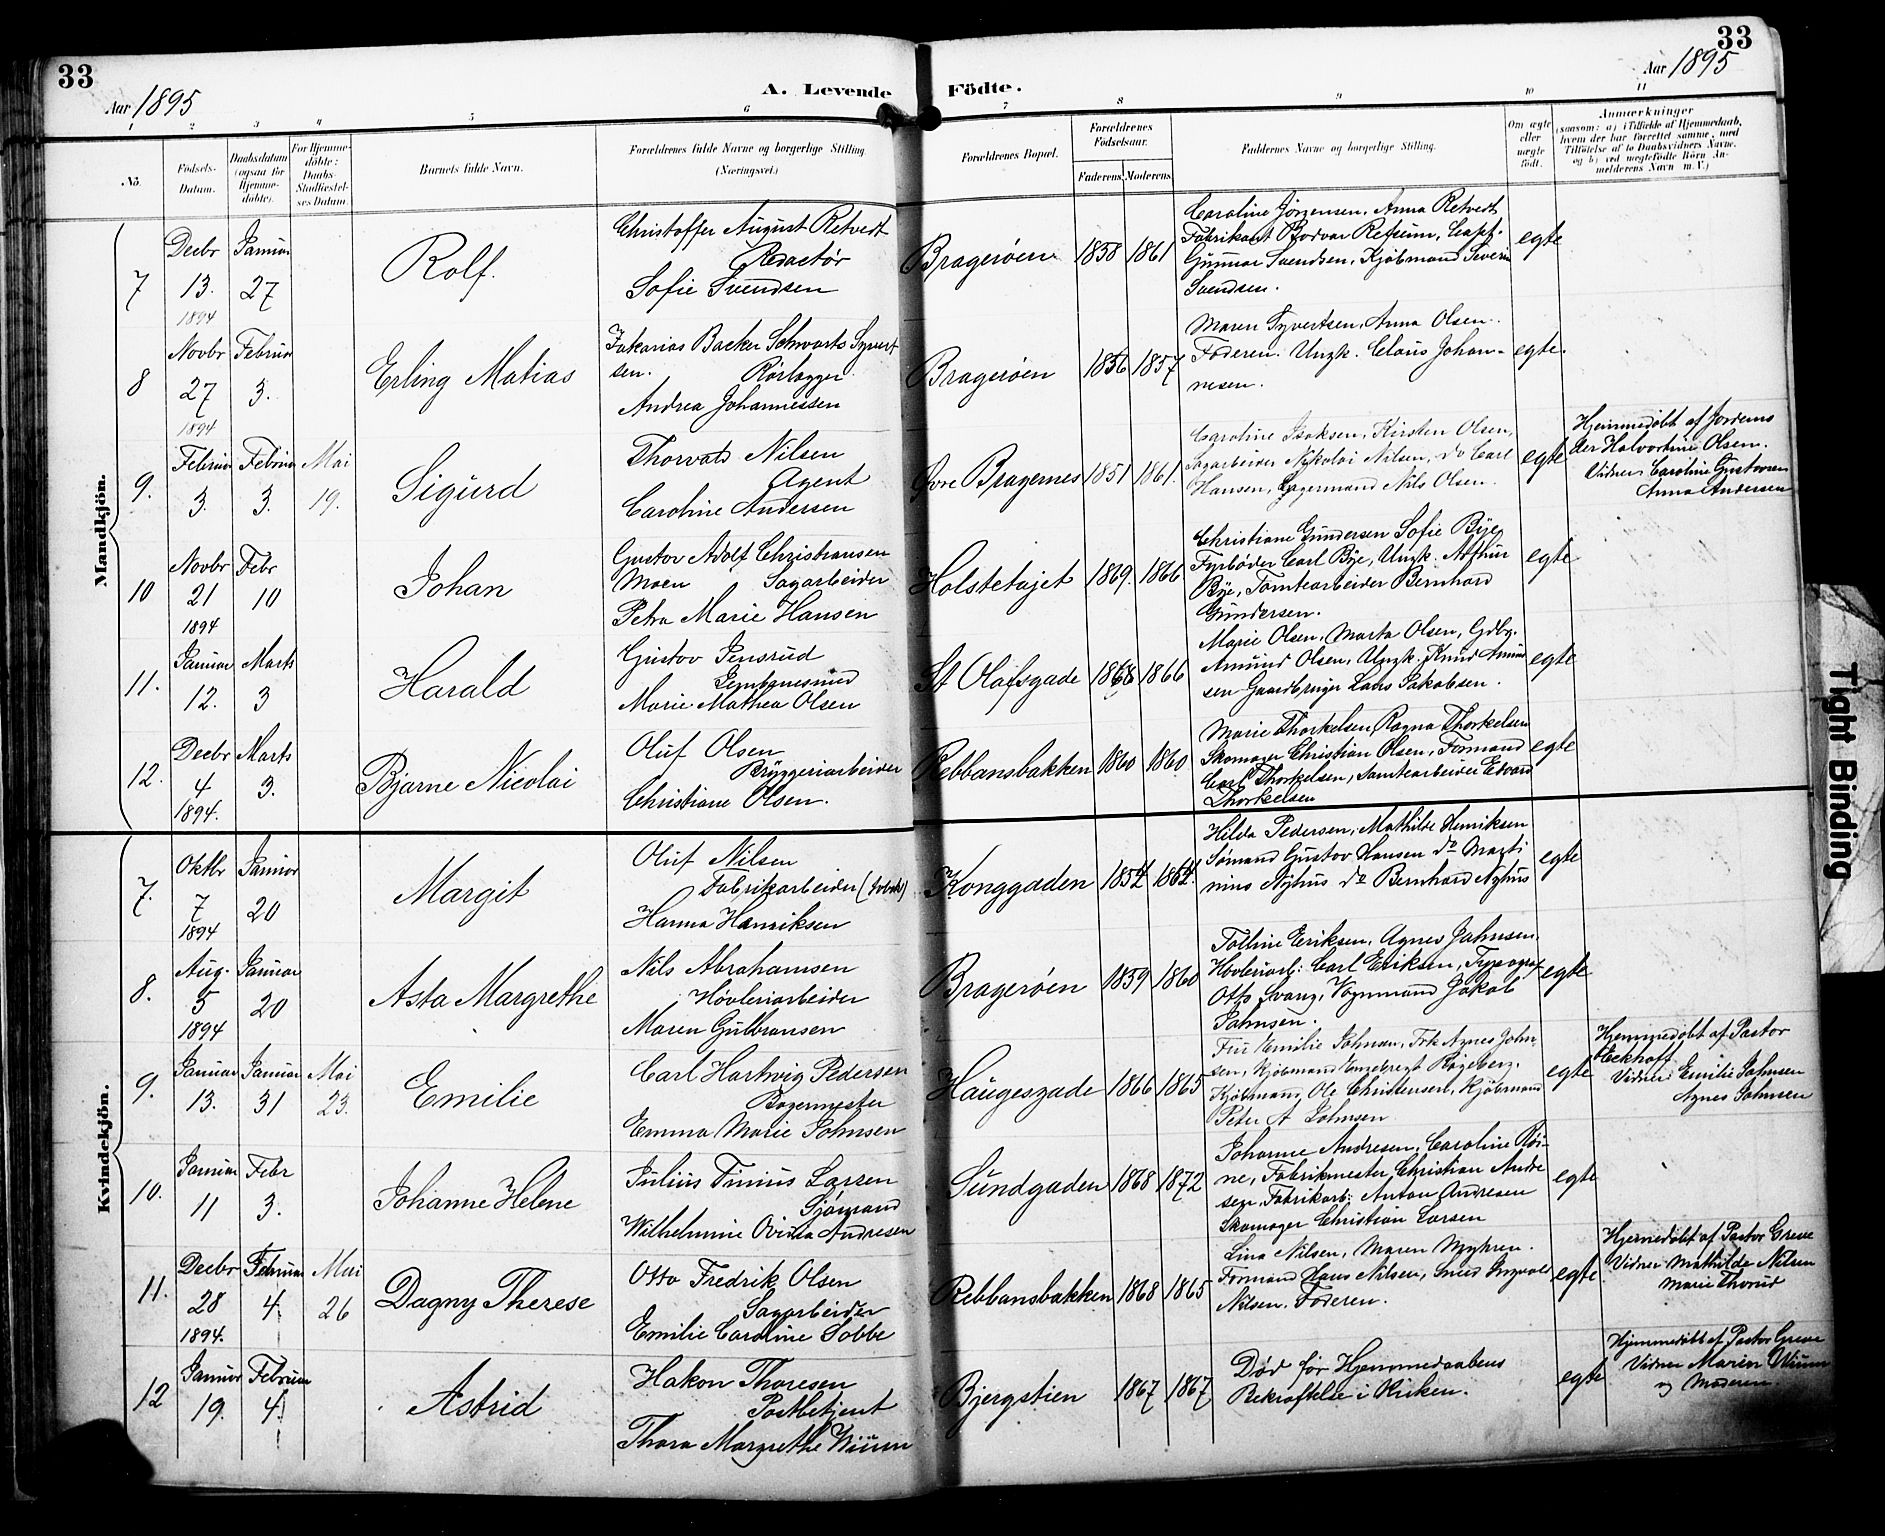 33
33
Aar 1895
Aar 1895
A. Levende Födte.
1 2 3 4 5 6 7 8 9 10 11
No.
Födsels-
Datum.
Daabsdatum
(ogsaa for
Hjemme-
döbte).
For Hjemme-
döbte:
Daabs-
Stadfæstel-
ses Datum.
Barnets fulde Navn.
Forældrenes fulde Navne og borgerlige Stilling.
(Næringsvei.)
Forældrenes Bopæl.
Forældrenes
Födselsaar.
Faderens. Moderens.
Faddernes Navne og borgerlige Stilling.
Om ægte
eller
uægte
födt.
Anmærkninger
(saasom: a) i Tilfælde af Hjemmedaab,
hvem der har forrettet samme, med
Tilföielse af to Daabsvidners Navne,
og b) ved uægtefödte Börn An-
melderens Navn m. V.)
Mandkjön.
7
Decbr
13.
1894
Januar
27
Rolf.
Christoffer August Retvedt
Redactör
Sofie Svendsen
Bragerøen
1858 1861
Caroline Jörgensen, Anna Retvedt
Fabrikant Bodvar Refsum, Capt.
Gunnar Svendsen, Kjöbmand Severin
Svendsen.
egte
8
Novbr
27
1894
Februar
3.
Erling Matias
Zakarias Backer Schwartz Syvert
sen. Rörlægger
Andrea Johannessen
Bragerøen
1856 1857
Maren Syvertsen, Anna Olsen.
Faderen. Ungk. Claus Johan-
nesen.
egte.
9.
Februar
3.
Februar
3.
Mai
19.
Sigurd
Thorvald Nilsen
Agent
Caroline Andersen
Övre Bragernes
1851 1861.
Caroline Isaksen, Kirsten Olsen,
Sagarbeider Nykolai Nilsen, do Carl
Hansen, Lagermand Nils Olsen.
egte
Hjemmedöbt af Jordemo
der Halvordine Olsen.
Vidner Caroline Gustavsen
Anna Andersen
10
Novbr
21
1894
Febr
10
Johan
Gustav Adolf Christiansen
Moen Sagarbeider
Petra Marie Hansen
Holstetajet
1869. 1866
Christiane Gundersen Sofie Bye
Fyrböder Carl Bye, Ungk. Arthur
Bye, Tomtearbeider Bernhard
Gundersen.
egte
11.
Januar
12.
Marts
3
Harald
Gustav Jensrud
Jernbanesmed
Marie Mathea Olsen
St Olafsgade
1868 1866
Marie Olsen, Marta Olsen, Gdbg.
Amund Olsen, Ungk. Knud Amund
sen Gaardbruger Lars Jakobsen.
egte
12.
Decbr
4
1894.
Marts
3.
Bjarne Nicolai
Oluf Olsen
Bryggeriarbeider
Christiane Olsen.
Rebbansbakken
1860 1860
Marie Thorkelsen, Ragna Thorkelsen
Skomager Christian Olsen, Formand
Carl Thorkelsen, Tomtearbeider Edvard
Thorkelsen
egte
Kvindekjön.
7.
Oktbr
7
1894
Januar
20
Margit
Oluf Nilsen
Fabrikarbeider
Hanna Henriksen
Konggaden
1854 1864.
Hilda Pedersen, Mathilde Henriksen
Sömand Gustav Hansen do Marti
nius Nyhus do Bernhard Nyhus
egte
8.
Aug.
5
1894
Januar
20
Asta Margrethe
Nils Abrahamsen
Hövleriarbeider
Maren Gulbransen
Bragerøen
1859 1860
Tolline Eriksen, Agnes Johnsen.
Hövleriarb: Carl Eriksen, Typograf
Otto Svang, Vognmand Jakob
Johnsen.
egte
9.
Januar
13.
Januar
31
Mai
23.
Emilie
Carl Hartvig Pedersen
Bagermester
Emma Marie Johnsen
Haugesgade
1866 1865
Fru Emilie Johnsen, Frk Agnes John-
sen, Kjöbmand Engebregt Bögeberg.
Kjöbmand Ole Christensen, Kjöbmand
Peter A Johnsen
egte
Hjemmedöbt af Pastor
Eckhoff
Vidner Emilie Johnsen
Agnes Johnsen
10.
Januar
11
Febr
3.
Johanne Helene
Julius Tinius Larsen
Sjömand
Wilhelmine Ovidia Andresen
Sundgaden
1868 1872
Johanne Andresen, Caroline Röi-
ne, Fabrikmester Christian Andre
sen, Fabrikarb: Anton Andresen
Skomager Christian Larsen
egte
11.
Decbr
28
1894.
Februar
4.
Mai
26
Dagny Therese
Otto Fredrik Olsen
Sagarbeider
Emilie Caroline Sobbe
Rebbansbakken
1868 1865
Lina Nilsen, Maren Myhren.
Formand Hans Nilsen, Smed Ingvald
Nilsen. Faderen.
egte
Hjemedöbt af Pastor Greve
Vidner Mathilde Nilsen
Marie Thorud
12
Januar
19.
Februar
4.
Astrid
Hakon Thoresen
Postbetjent
Thora Margrethe Wiium
Bjergstien
1867 1867
Död før Hjemmedaabens
Bekræftelse i Kirken.
egte
Hjemmedöbt af Pastor Greve
Vidner Maren Wiium
og Moderen
Tight Binding